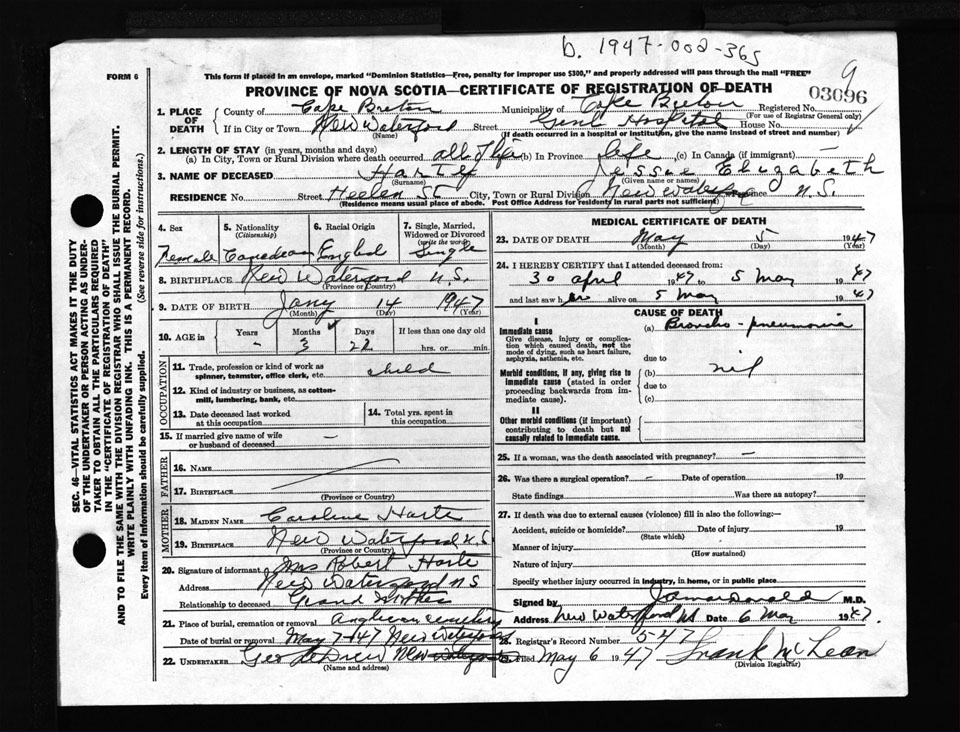 b. 1947-002-365
FORM 6
This form if placed in an envelope, marked "Dominion Statistics—Free, penalty for improper use $300," and properly addressed will pass through the mail "FREE"
9
PROVINCE OF NOVA SCOTIA—CERTIFICATE OF REGISTRATION OF DEATH
03096
1. PLACE OF DEATH
County of Cape Breton Municipality of Cape Breton Registered No.
(For use of Registrar General only)
If in City or Town New Waterford Street Genl Hospital House No.
(Name) (If death occurred in a hospital or institution, give the name instead of street and number)
2. LENGTH OF STAY (in years, months and days)
(a) In City, Town or Rural Division where death occurred all life (b) In Province life (c) In Canada (if immigrant) —
3. NAME OF DECEASED Jessie Elizabeth
(Surname) (Given name or names)
RESIDENCE No. Street Heelen St City, Town or Rural Division New Waterford Province N.S.
(Residence means usual place of abode. Post Office Address for residents in rural parts not sufficient)
SEC. 46—VITAL STATISTICS ACT MAKES IT THE DUTY
OF THE UNDERTAKER OR PERSON ACTING AS UNDERTAKER
TO OBTAIN ALL THE PARTICULARS REQUIRED
IN THE "CERTIFICATE OF REGISTRATION OF DEATH"
AND TO FILE THE SAME WITH THE DIVISION REGISTRAR WHO SHALL ISSUE THE BURIAL PERMIT.
WRITE PLAINLY WITH UNFADING INK. THIS IS A PERMANENT RECORD.
Every item of information should be carefully supplied. (See reverse side for instructions.)
4. Sex
5. Nationality
(Citizenship)
6. Racial Origin
7. Single, Married,
Widowed or Divorced
(write the word)
Female Canadian English Single
8. BIRTHPLACE New Waterford N.S.
(Province or Country)
9. DATE OF BIRTH Jany 14 1947
(Month) (Day) (Year)
10. AGE in
Years Months Days If less than one day old
- 3 22 hrs. or min.
OCCUPATION
11. Trade, profession or kind of work as
spinner, teamster, office clerk, etc. child
12. Kind of industry or business, as cotton-
mill, lumbering, bank, etc.
13. Date deceased last worked
at this occupation
14. Total yrs. spent in
this occupation
15. If married give name of wife
or husband of deceased —
FATHER
16. NAME
17. BIRTHPLACE
(Province or Country)
MOTHER
18. MAIDEN NAME Caroline Harte
19. BIRTHPLACE New Waterford N.S.
(Province or Country)
20. Signature of informant Mrs Robert Harte
Address New Waterford N S
Relationship to deceased Grand Mother
21. Place of burial, cremation or removal Anglican cemetery
Date of burial or removal May 7-147 New Waterford
22. UNDERTAKER Geo New Waterford
(Name and address)
MEDICAL CERTIFICATE OF DEATH
23. DATE OF DEATH May 5 1947
(Month) (Day) (Year)
24. I HEREBY CERTIFY that I attended deceased from:
30 april 1947 to 5 May 1947
and last saw her alive on 5 May 1947
CAUSE OF DEATH
I
Immediate cause
Give disease, injury or complica-
tion which caused death, not the
mode of dying, such as heart failure,
asphyxia, asthenia, etc.
(a) Broncho-pneumonia
due to
Morbid conditions, if any, giving rise to
immediate cause (stated in order
proceeding backwards from im-
mediate cause).
(b) nil
due to
(c)
II
Other morbid conditions (if important)
contributing to death but not
causally related to immediate cause.
25. If a woman, was the death associated with pregnancy? —
26. Was there a surgical operation? - Date of operation 19
State findings Was there an autopsy?
27. If death was due to external causes (violence) fill in also the following:—
Accident, suicide or homicide? Date of injury 19
(State which)
Manner of injury
(How sustained)
Nature of injury
Specify whether injury occurred in industry, in home, or in public place
Signed by M.D.
Address New Waterford NS Date 6 May 1947.
28. Registrar's Record Number 547
29. Filed May 6 1947 Frank McLean
(Division Registrar)